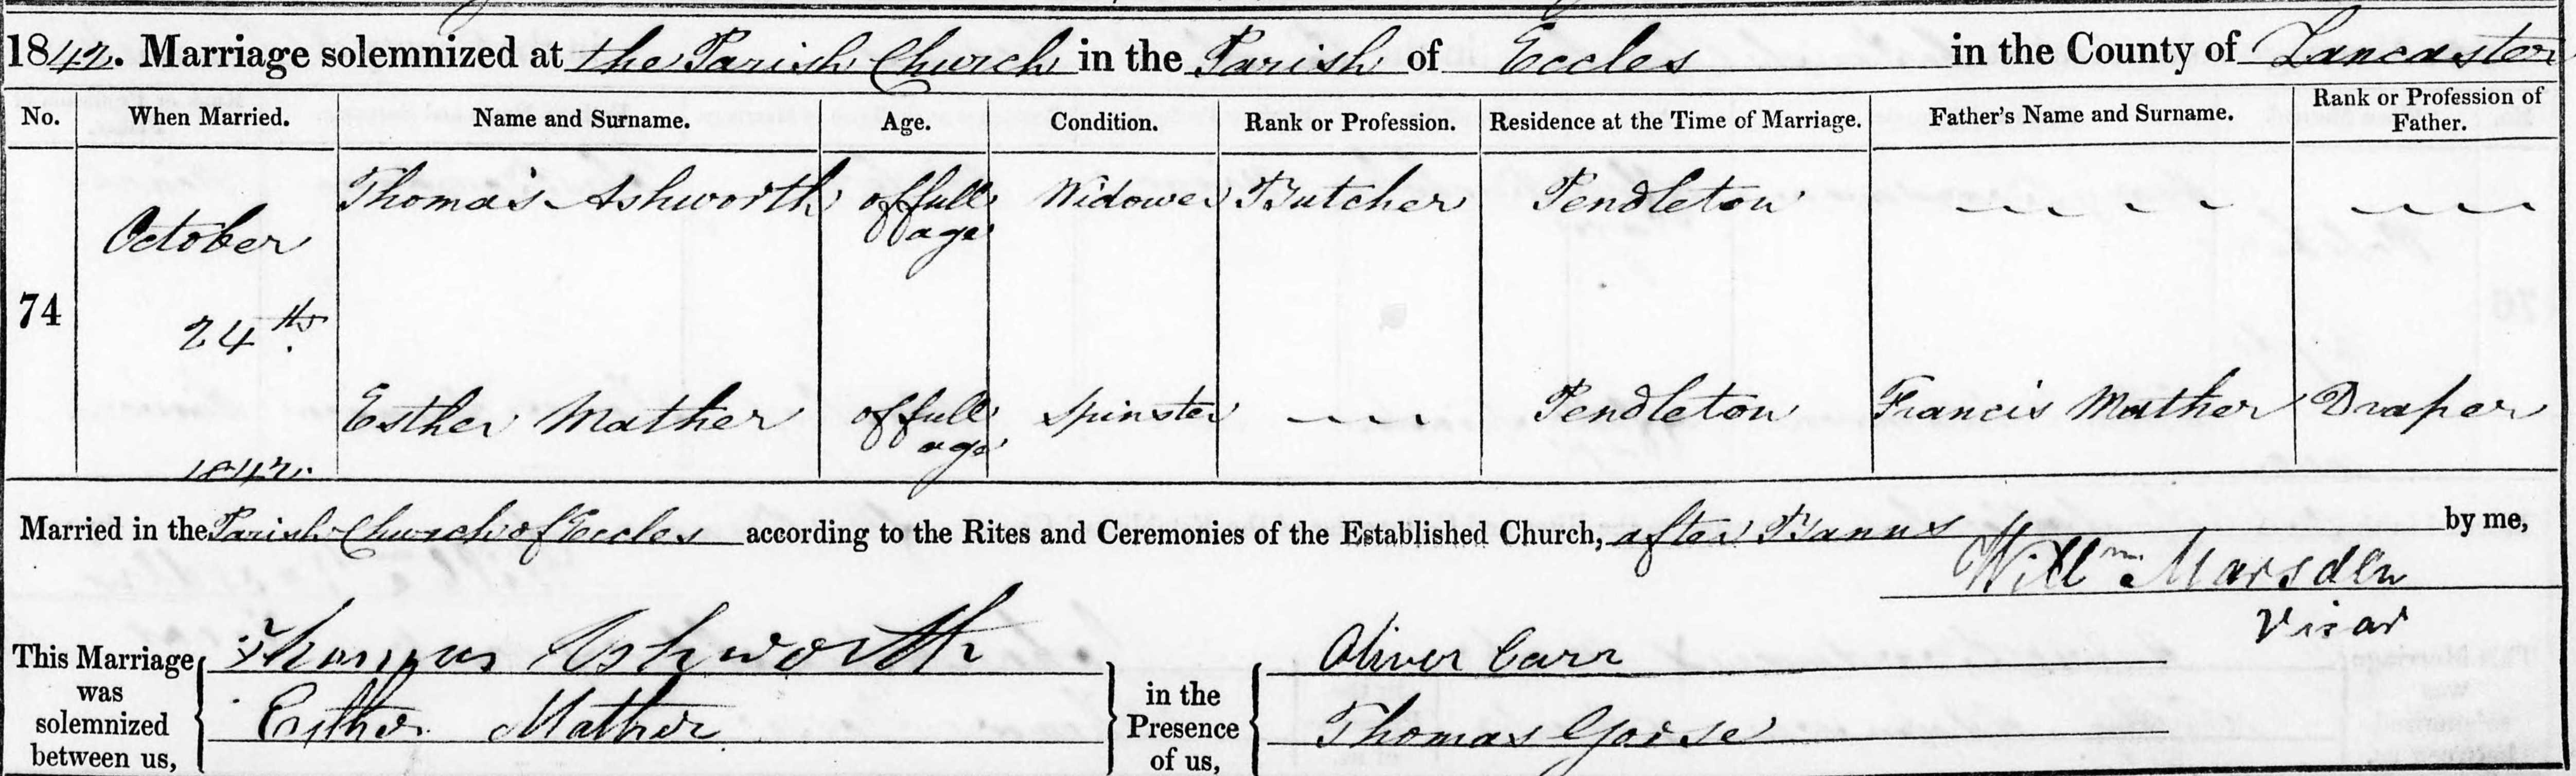 1842. Marriage solemnized at the Parish Church in the Parish of Eccles in the County of Lancaster
No. When Married. Name and Surname. Age. Condition. Rank or Profession. Residence at the Time of Marriage. Father's Name and Surname. Rank or Profession of Father.
74 October 24th. 1842.
Thomas Ashworth of full age Widower Butcher Pendleton
Esther Mather of full age Spinster Pendleton Francis Mather Draper
Married in the Parish Church of Eccles according to the Rites and Ceremonies of the Established Church, after Banns by me,
Willm Marsden
Vicar
This Marriage was solemnized between us,
Thomas Ashworth
Esther Mather
in the Presence of us,
Oliver Carr
Thomas Gorse